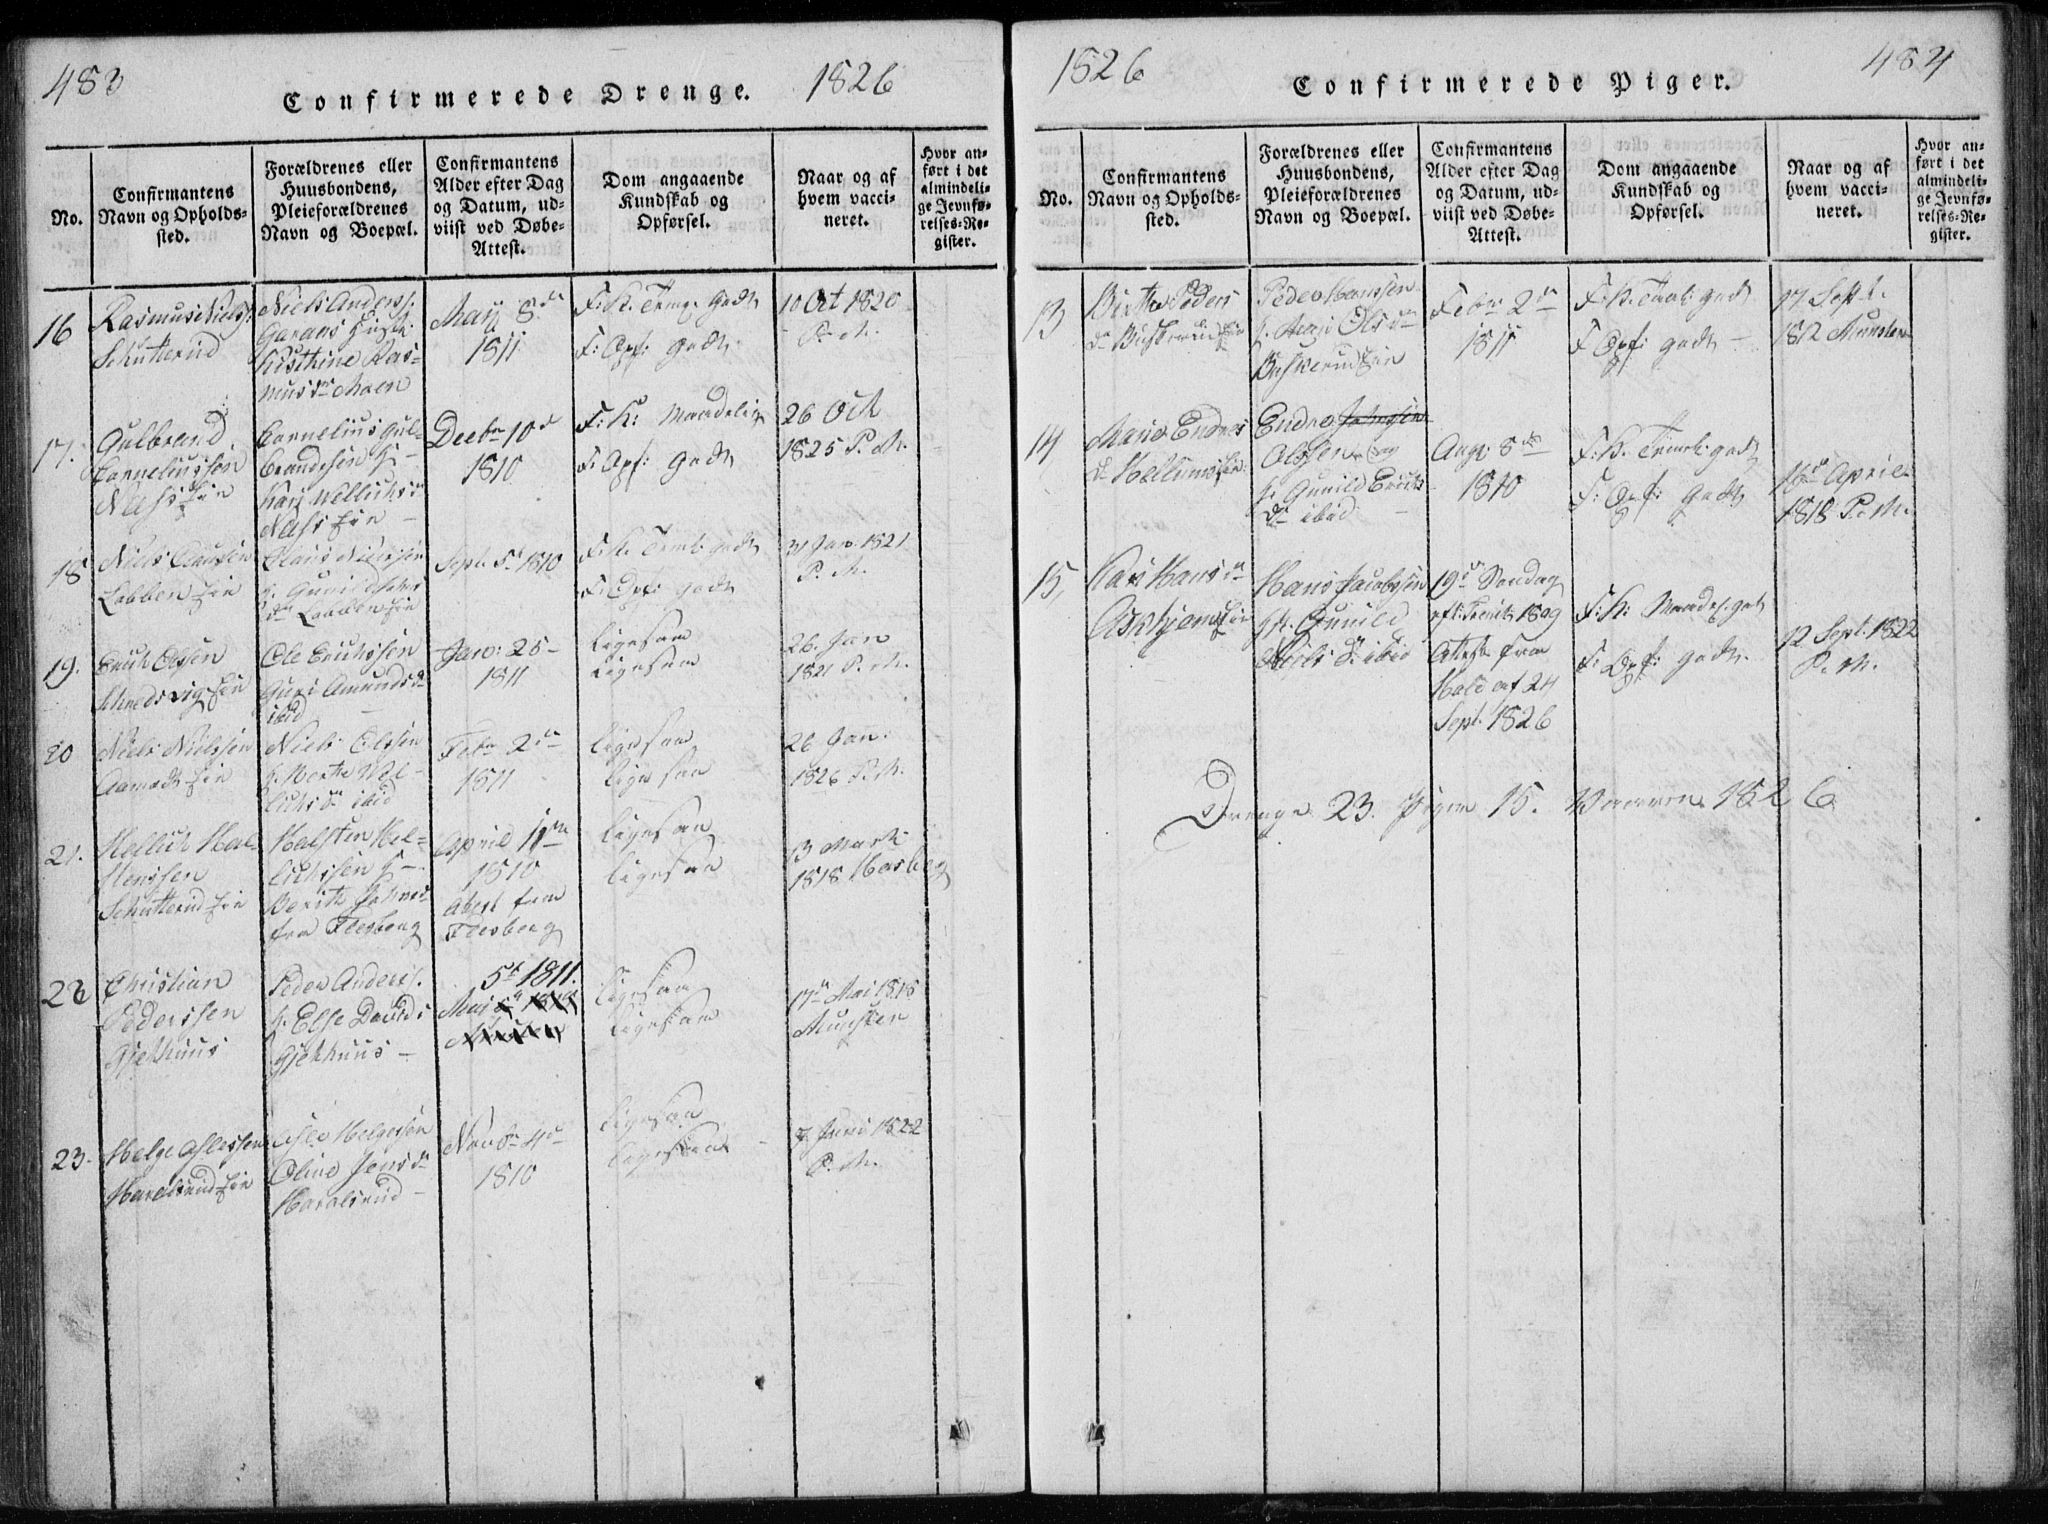 483
Confirmerede Drenge. 1826
No.
Confirmantens
Navn og Opholds-
sted.
Forældrenes eller
Huusbondens,
Pleieforældrenes
Navn og Boepæl.
Confirmantens
Alder efter Dag
og Datum, ud-
viist ved Døbe-
Attest.
Dom angaaende
Kundskab og
Opførsel.
Naar og af
hvem vacci-
neret.
Hvor an-
ført i det
almindeli-
ge Jevnfø-
relses-Re-
gister.
16
Rasmus Niels:
Schutterud
Niels Anders:
Kisthine Ras-
mus dr Moen
Maij 8de
1811
F: K: Temg. Godt
F: Opf: Godt
10 Oct 1820
P. M.
17.
Gulbrand
Corneliussen
Næss Ein
Cornelius Gul-
brandsen H-
Kari Wellichs d
Næss Ein -
Decbr 10 d
1810
F: K: Maadelig
F: Opf: Godt
26 Oct
1825 P. M.
18
Niels Clausen
Labben Ein
Claus Nielssen
H. Gunild
dr Labben Ein
Sept. 5t 1810
F: K: Teml: godt
F: Opf: godt
31 Jan: 1821
P. M.
19.
Erich Olssen
Schredsvig Ein
Ole Erichssen
Guri Amunds d
ibid -
Janv: 25-
1811
ligesaa
ligesaa
26. Jan
1821 P. M.
20
Niels Nielssen
Aamodt Ein
Niels Olssen
H. Merthe Wel-
lichs dr ibid
Febr 2de
1811
ligesaa
ligesaa
26 Jan:
1826 P. M.
21.
Hellich Hal-
stenssen
Schutterud Ein
Halsten Hel-
lichssen H-
Berith Johns d
fra Flesberg
April 11te
1810
Atest fra
Flesberg
ligesaa
ligesaa
13 Marti
1818 Hasberg
22
Christian
Pederssen
Gjethuus
Peder Anders:
H. Else Davids
Gjethuus -
5t 1811.
Mai
ligesaa
ligesaa
17de Mai 1818
Munster
23.
Helge Aslessen
Haralsrud Ein
Asle Helgesen
Oline Jens dr
Haralsrud -
Novbr 4de
1810
ligesaa
ligesaa -
7 Juni 1822
P. M.
1826
Confirmerede Piger.
484
No.
Confirmantens
Navn og Opholds-
sted.
Forældrenes eller
Huusbondens,
Pleieforældrenes
Navn og Boepæl.
Confirmantens
Alder efter Dag
og Datum, ud-
viist ved Døbe-
Attest.
Dom angaaende
Kundskab og
Opførsel.
Naar og af
hvem vacci-
neret.
Hvor an-
ført i det
almindeli-
ge Jevnfø-
relses-Re-
gister.
13
Birthe Peders
dr Buskerud Ein
Peder Hanssen
H. Maji Ols dr
Buskerud Ein
Febr 2de
1811
F: K. Teml: god
F Opf: godt -
17 Sept.
1812 Munster
14
Marie Endres
dr Hellums Ein
Endre Johnsen
Olssen og
H. Gunild Erichs
dr ibid -
Aug: 8de
1810
F: K. Teml: godt
F: Opf: Godt
16de April
1818 P. M.
15,
Kari Hans dr
Askhjem Ein
Hans Jacobsen
H. Gunild
Niels D. ibid
19de Søndag
eft: Trinit: 1809
Attest fra
Hole af 24
Sept. 1826
F: K: Maadel. got
F: Opf: godt.
12 Sept: 1822
P. M.
Drenge 23. Piger 15. Vaaren 1826